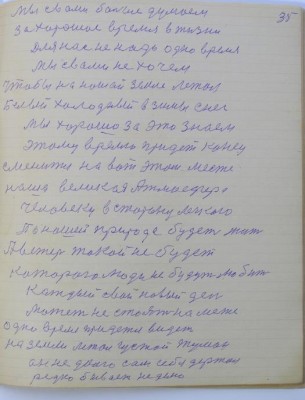 35
Мы с вами больше думаем
За хорошое время в жизни
Для нас не надо одно время
Мы с вами не хочем
Чтобы на нашой земле летом
Белый холодный зимы снег
Мы хорошо за это знаем
Этому время придет конец
сменити на вот этом месте
наша великая Атмосфера
Человеку в сторону
По нашой природе будет жить
Ветер такой не будет
Которого люди не будут любить
Каждый свой новый день
Может не стоят на месте
одно время придется видеть
на земли летом густой туман
он не долго сам себя держал
редко бывает